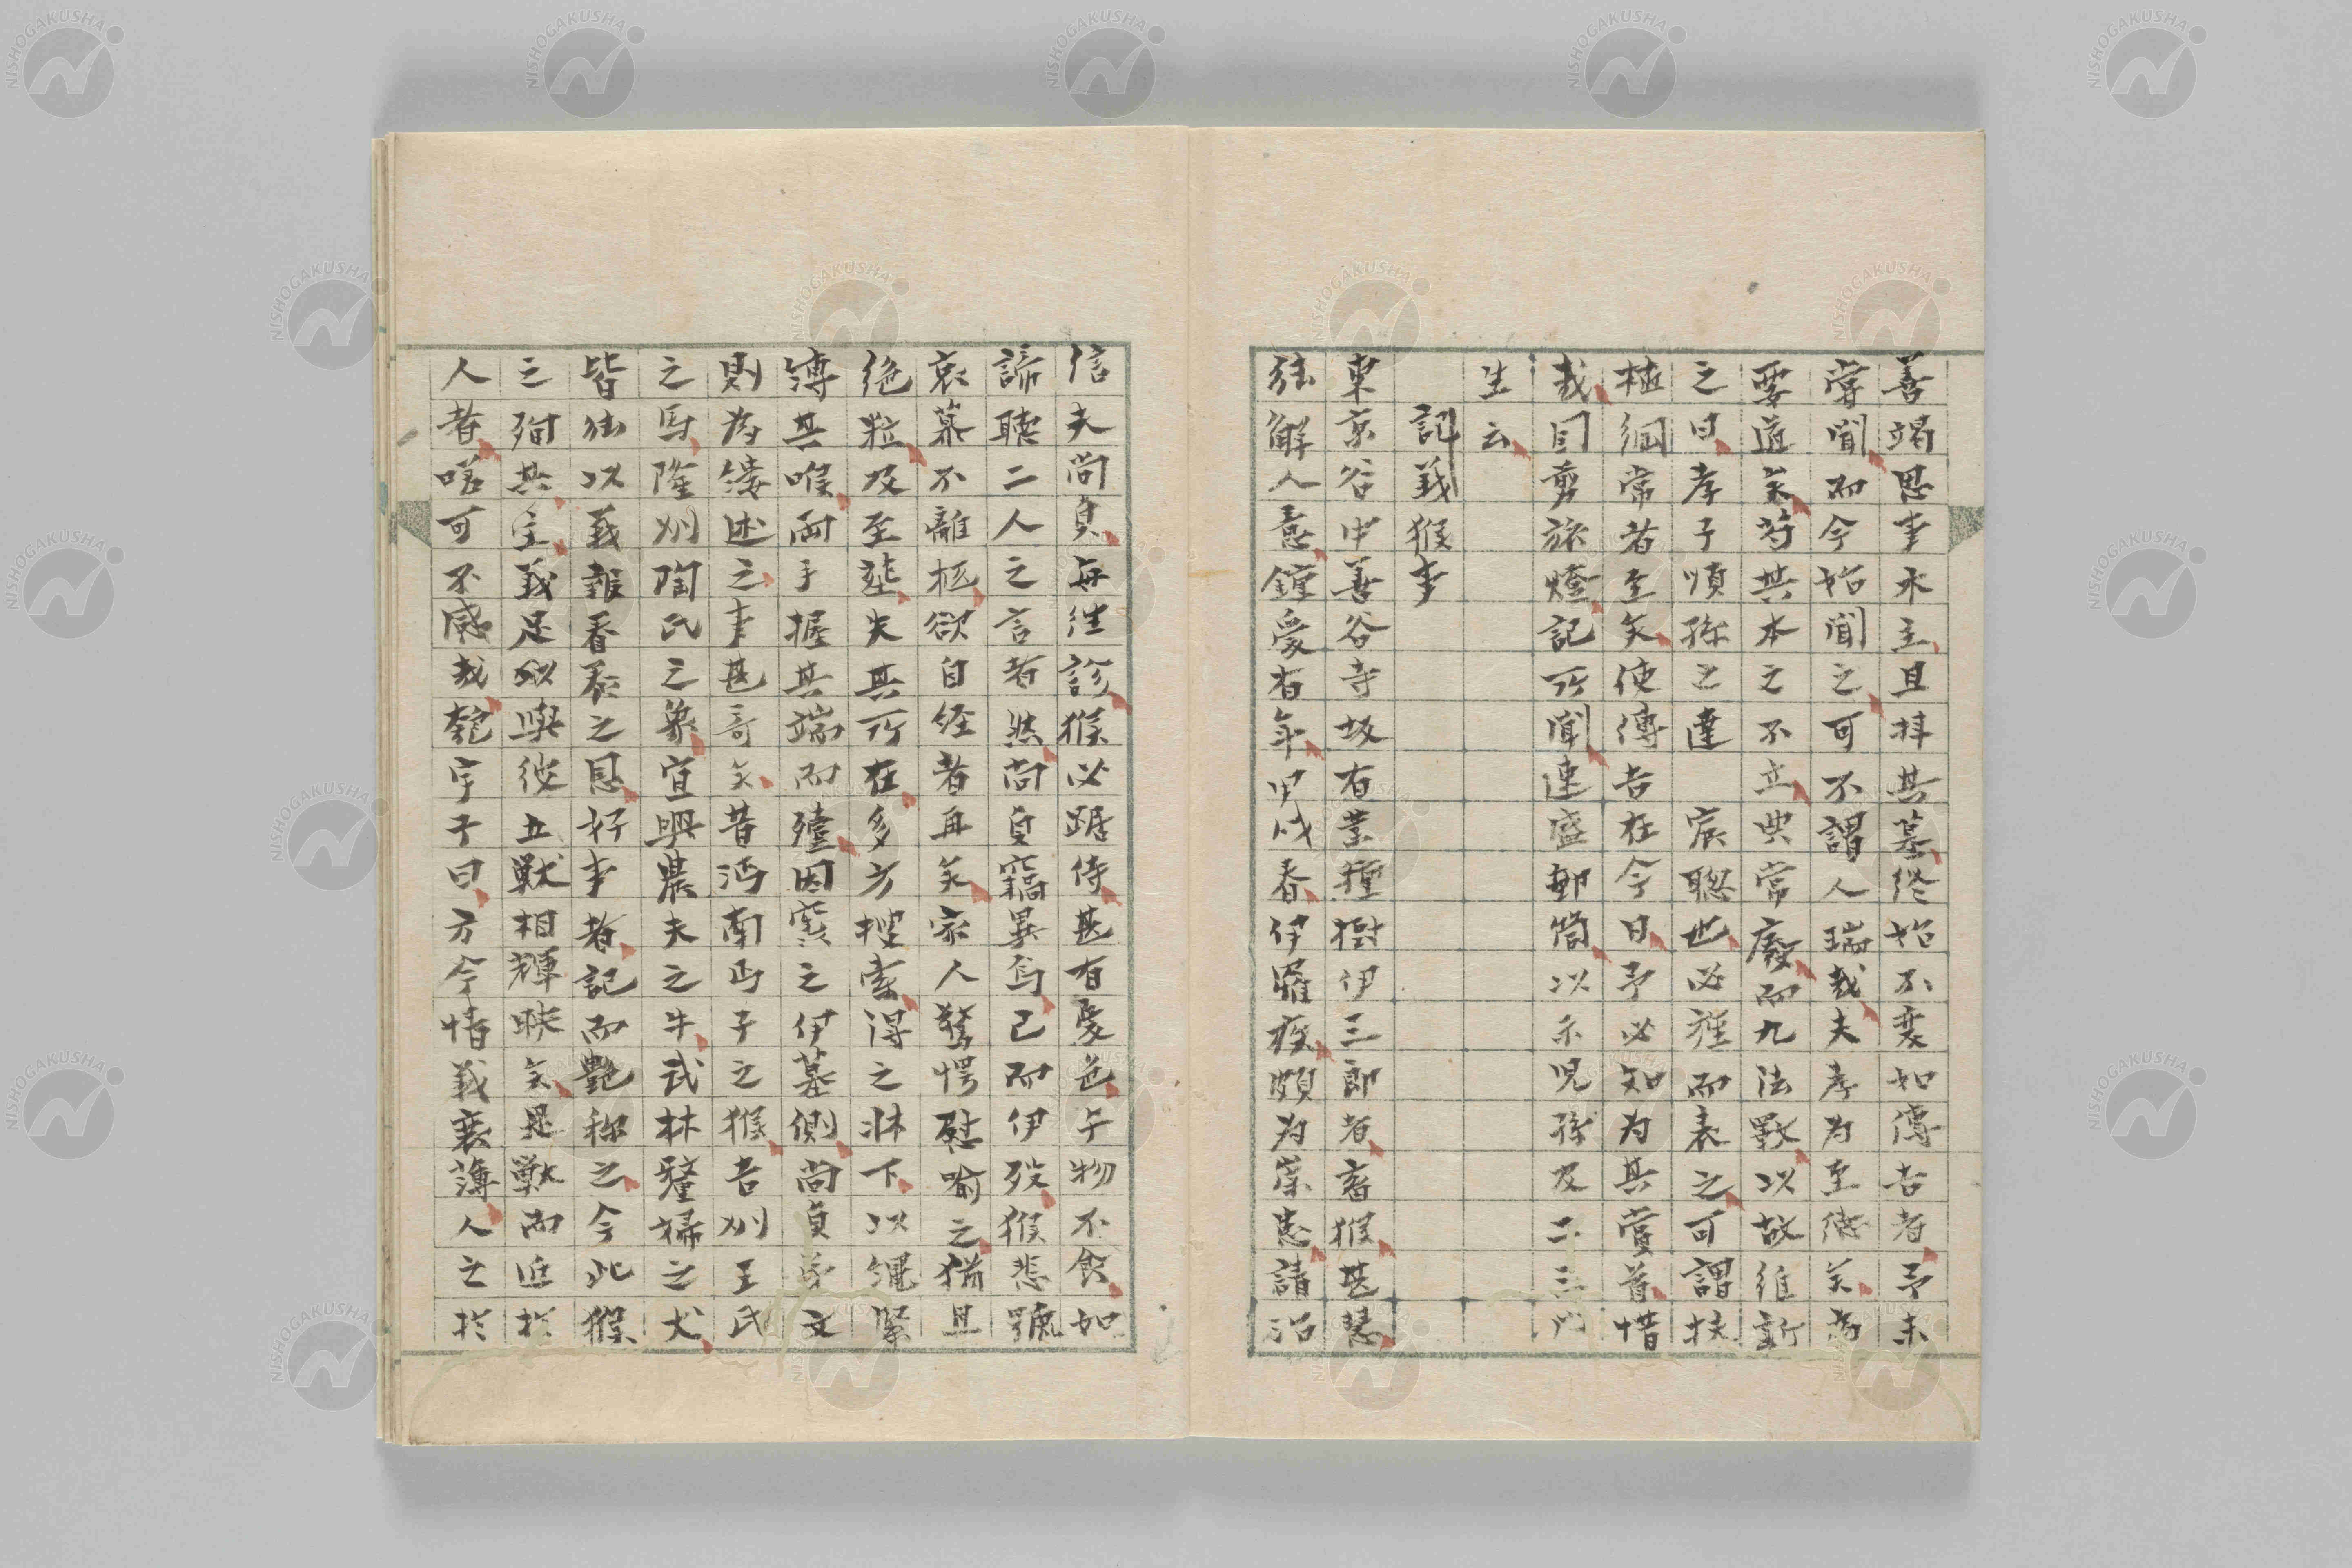 善竭思事水主且拝其墓終始不変如傳吉者予未
嘗聞而今始聞之可不謂人瑞哉夫孝為至徳
要道矣苟其本之不立典常廢而九法斁以故維新
之日孝子順孫之達 宸聰也必旌而表之可謂扶
植綱常者至矣使傳吉在今日予必知為其賞首惜
哉因剪旅燈記所聞速盛郵筒以示児孫及二三門
生云
記義猴事
東京谷中善谷寺坂有業種樹伊三郎者畜猴甚慧
能解人意鍾愛有年甲戌春伊羅疫頗為崇患請治
信夫尚貞毎往診猴必踞侍甚有憂色午物不食如
諦聴二人之言者然尚貞竊異焉已而伊歿猴悲號
哀慕不離柩欲自経者再矣家人驚愕慰喩之猶且
絶粒及至葬失其所在多方捜索得之牀下以縄緊
縛其喉両手握其端而殪因窆之伊墓側尚貞
則為縷述之事甚奇矣昔沔南丐子之猴吉州王氏
之馬隆州陶氏之象宜興農夫之牛武林孀婦之犬
皆能以義報眷養之恩好事者記而艶称之今此猴
之殉其主義足以與彼五獣相輝映矣是獣而近於
人者嗟可不感哉匏宇子曰方今情義衰薄人之於
NISHOGAKUSHA